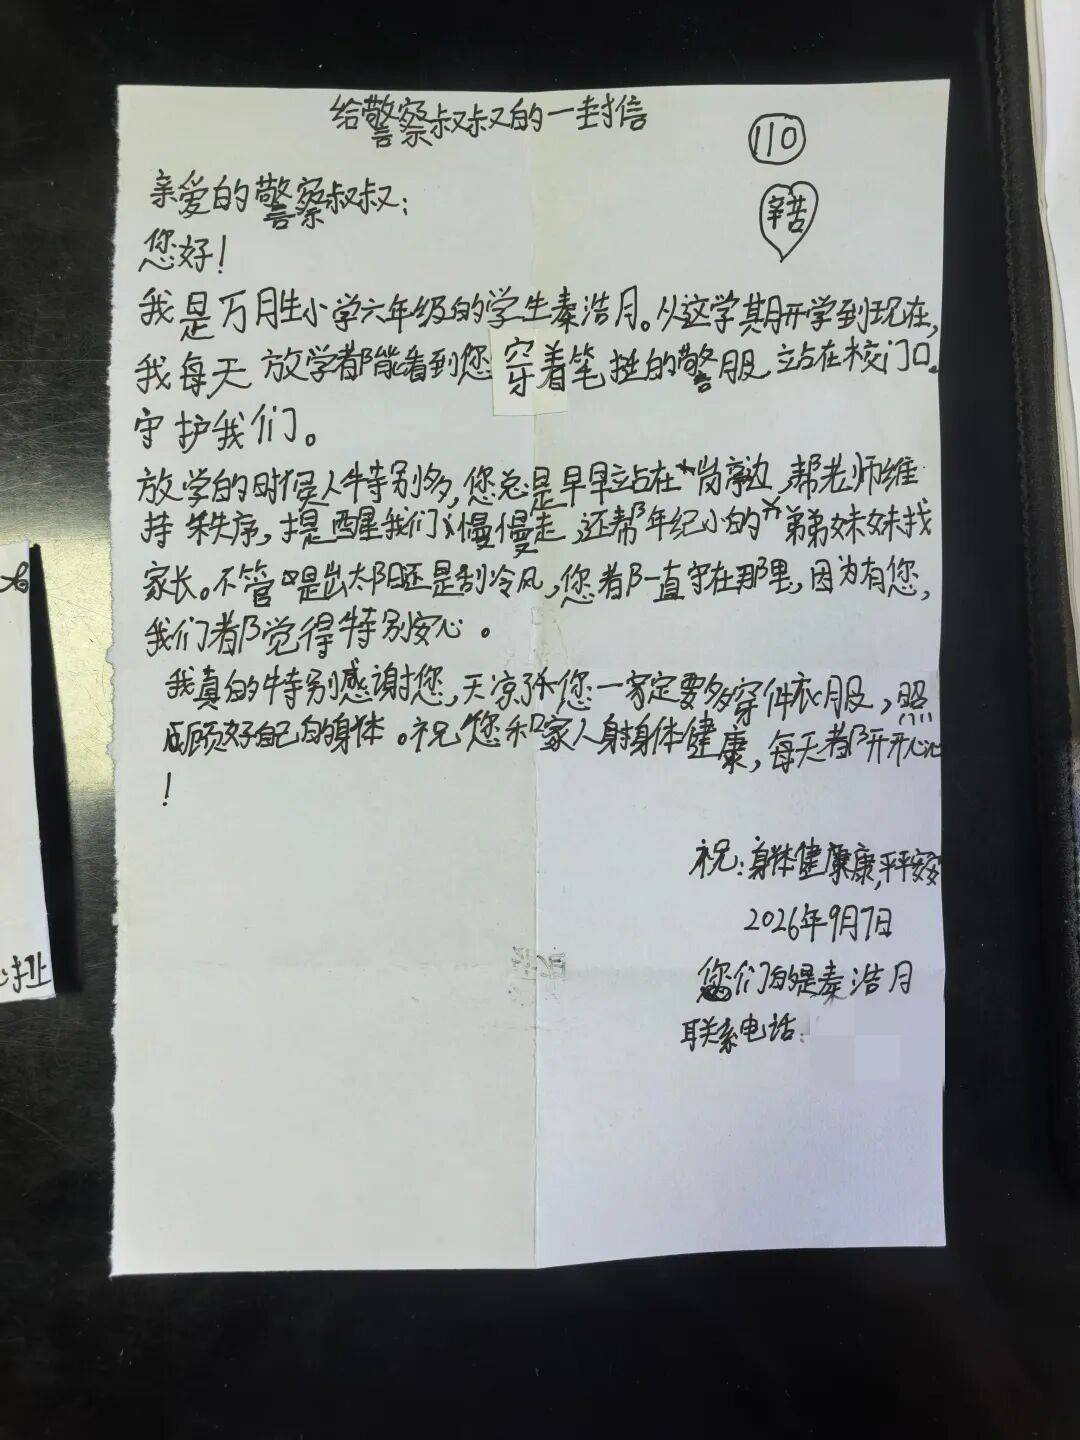 给警察叔叔的一封信
110
辛苦
亲爱的警察叔叔:
您好!
我是万月生小学六年级的学生秦浩月。从这学期开学到现在,
我每天放学都能看到您穿着笔挺的警服,站在校门口。
守护我们。
放学的时候人特别多,您总是早早站在岗亭边,帮老师维
持秩序,提醒我们慢慢走,还帮年纪小的弟弟妹妹找
家长。不管是出太阳还是刮冷风,您都一直守在那里,因为有您,
我们都觉得特别安心。
我真的特别感谢您,天凉了您一定要多穿件衣服,照
顾好自己的身体。祝您和家人身体健康,每天都开开心心
!
祝:身体健康,平平安安
2026年9月7日
您们的是秦浩月
联系电话: